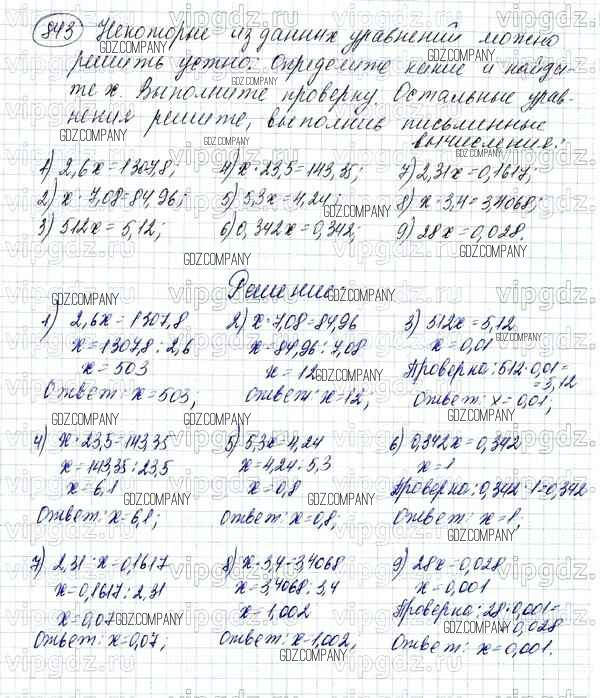 843 Некоторые из данных уравнений можно
решить устно. Определите какие и найди-
те x. Выполните проверку. Остальные урав-
нения решите, выполнив письменные
вычисления:
1) 2,6x=1307,8; 4) x·23,5=143,35; 7) 2,31x=0,1617;
2) x·7,08=84,96; 5) 5,3x=4,24; 8) x·3,4=3,4068;
3) 512x=5,12; 6) 0,342x=0,342; 9) 28x=0,028.
Решение:
1) 2,6x=1307,8 2) x·7,08=84,96 3) 512x=5,12
x=1307,8:2,6 x=84,96:7,08 x=0,01
x=503 x=12 Проверка: 512·0,01=
=5,12
Ответ: x=503; Ответ: x=12; Ответ: x=0,01;
4) x·23,5=143,35 5) 5,3x=4,24 6) 0,342x=0,342
x=143,35:23,5 x=4,24:5,3 x=1
x=6,1 x=0,8 Проверка: 0,342·1=0,342
Ответ: x=6,1; Ответ: x=0,8; Ответ: x=1;
7) 2,31·x=0,1617 8) x·3,4=3,4068 9) 28x=0,028
x=0,1617:2,31 x=3,4068:3,4 x=0,001
x=0,07 x=1,002 Проверка: 28·0,001=
=0,028
Ответ: x=0,07; Ответ: x=1,002; Ответ: x=0,001.
GDZ.COMPANY
vipgdz.ru